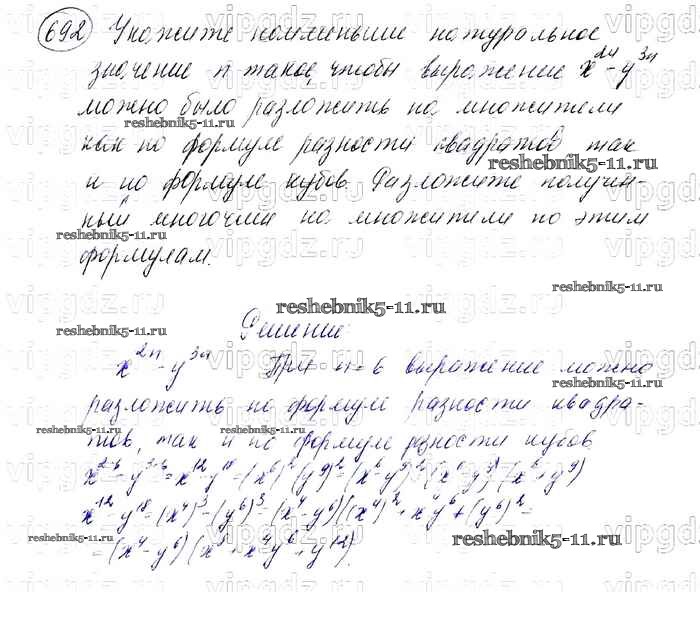 692 Укажите наименьшее натуральное
значение n такое, чтобы выражение x²ⁿ-y³ⁿ
можно было разложить на множители
как по формуле разности квадратов, так
и по формуле кубов. Разложите получен-
ный многочлен на множители по этим
формулам.
Решение:
x²ⁿ-y³ⁿ При n=6 выражение можно
разложить по формуле разности квадра-
тов, так и по формуле разности кубов
x²·⁶-y³·⁶=x¹²-y¹⁸=(x⁶)²-(y⁹)²=(x⁶-y⁹)(x⁶+y⁹)
x¹²-y¹⁸=(x⁴)³-(y⁶)³=(x⁴-y⁶)((x⁴)²+x⁴y⁶+(y⁶)²=
=(x⁴-y⁶)(x⁸+x⁴y⁶+y¹²).
vipgdz.ru
reshebnik5-11.ru